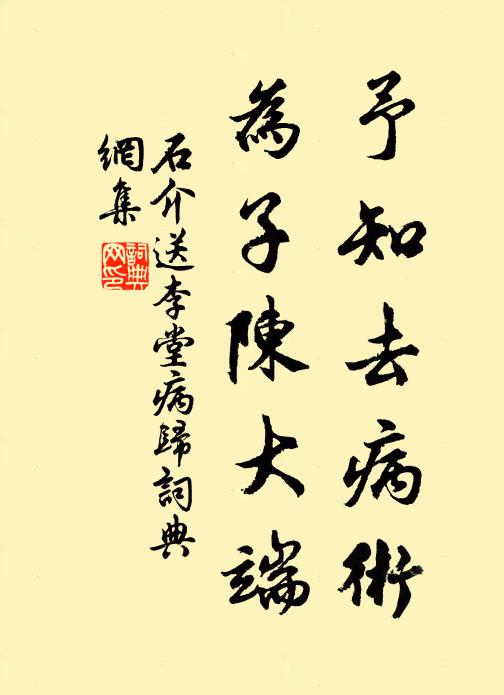 予知去病術
為子陳大端
石介送李堂病歸詞典
網集
詞典
网印